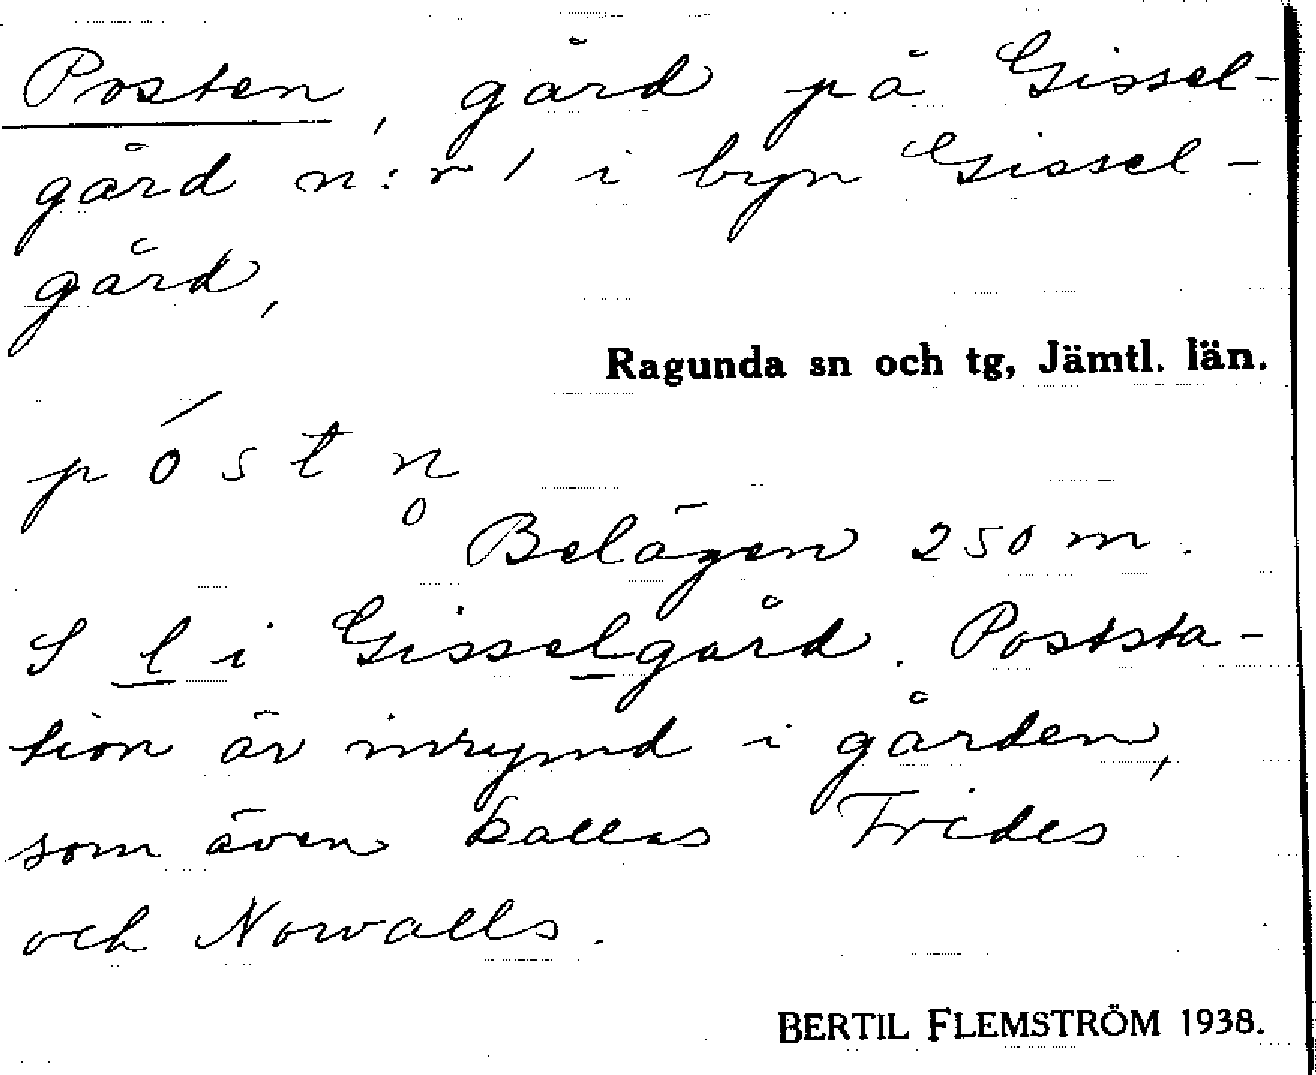 Posten, gård på Gissel-
gård n:r 1 i byn Gissel-
gård,
Ragunda sn och tg, Jämtl. län.
póstn̥
Belägen 250 m.
S l i Gisselgård. Poststa-
tion är inrymd i gården,
som även kallas Frides
och Norvalls.
BERTIL FLEMSTRÖM 1938.